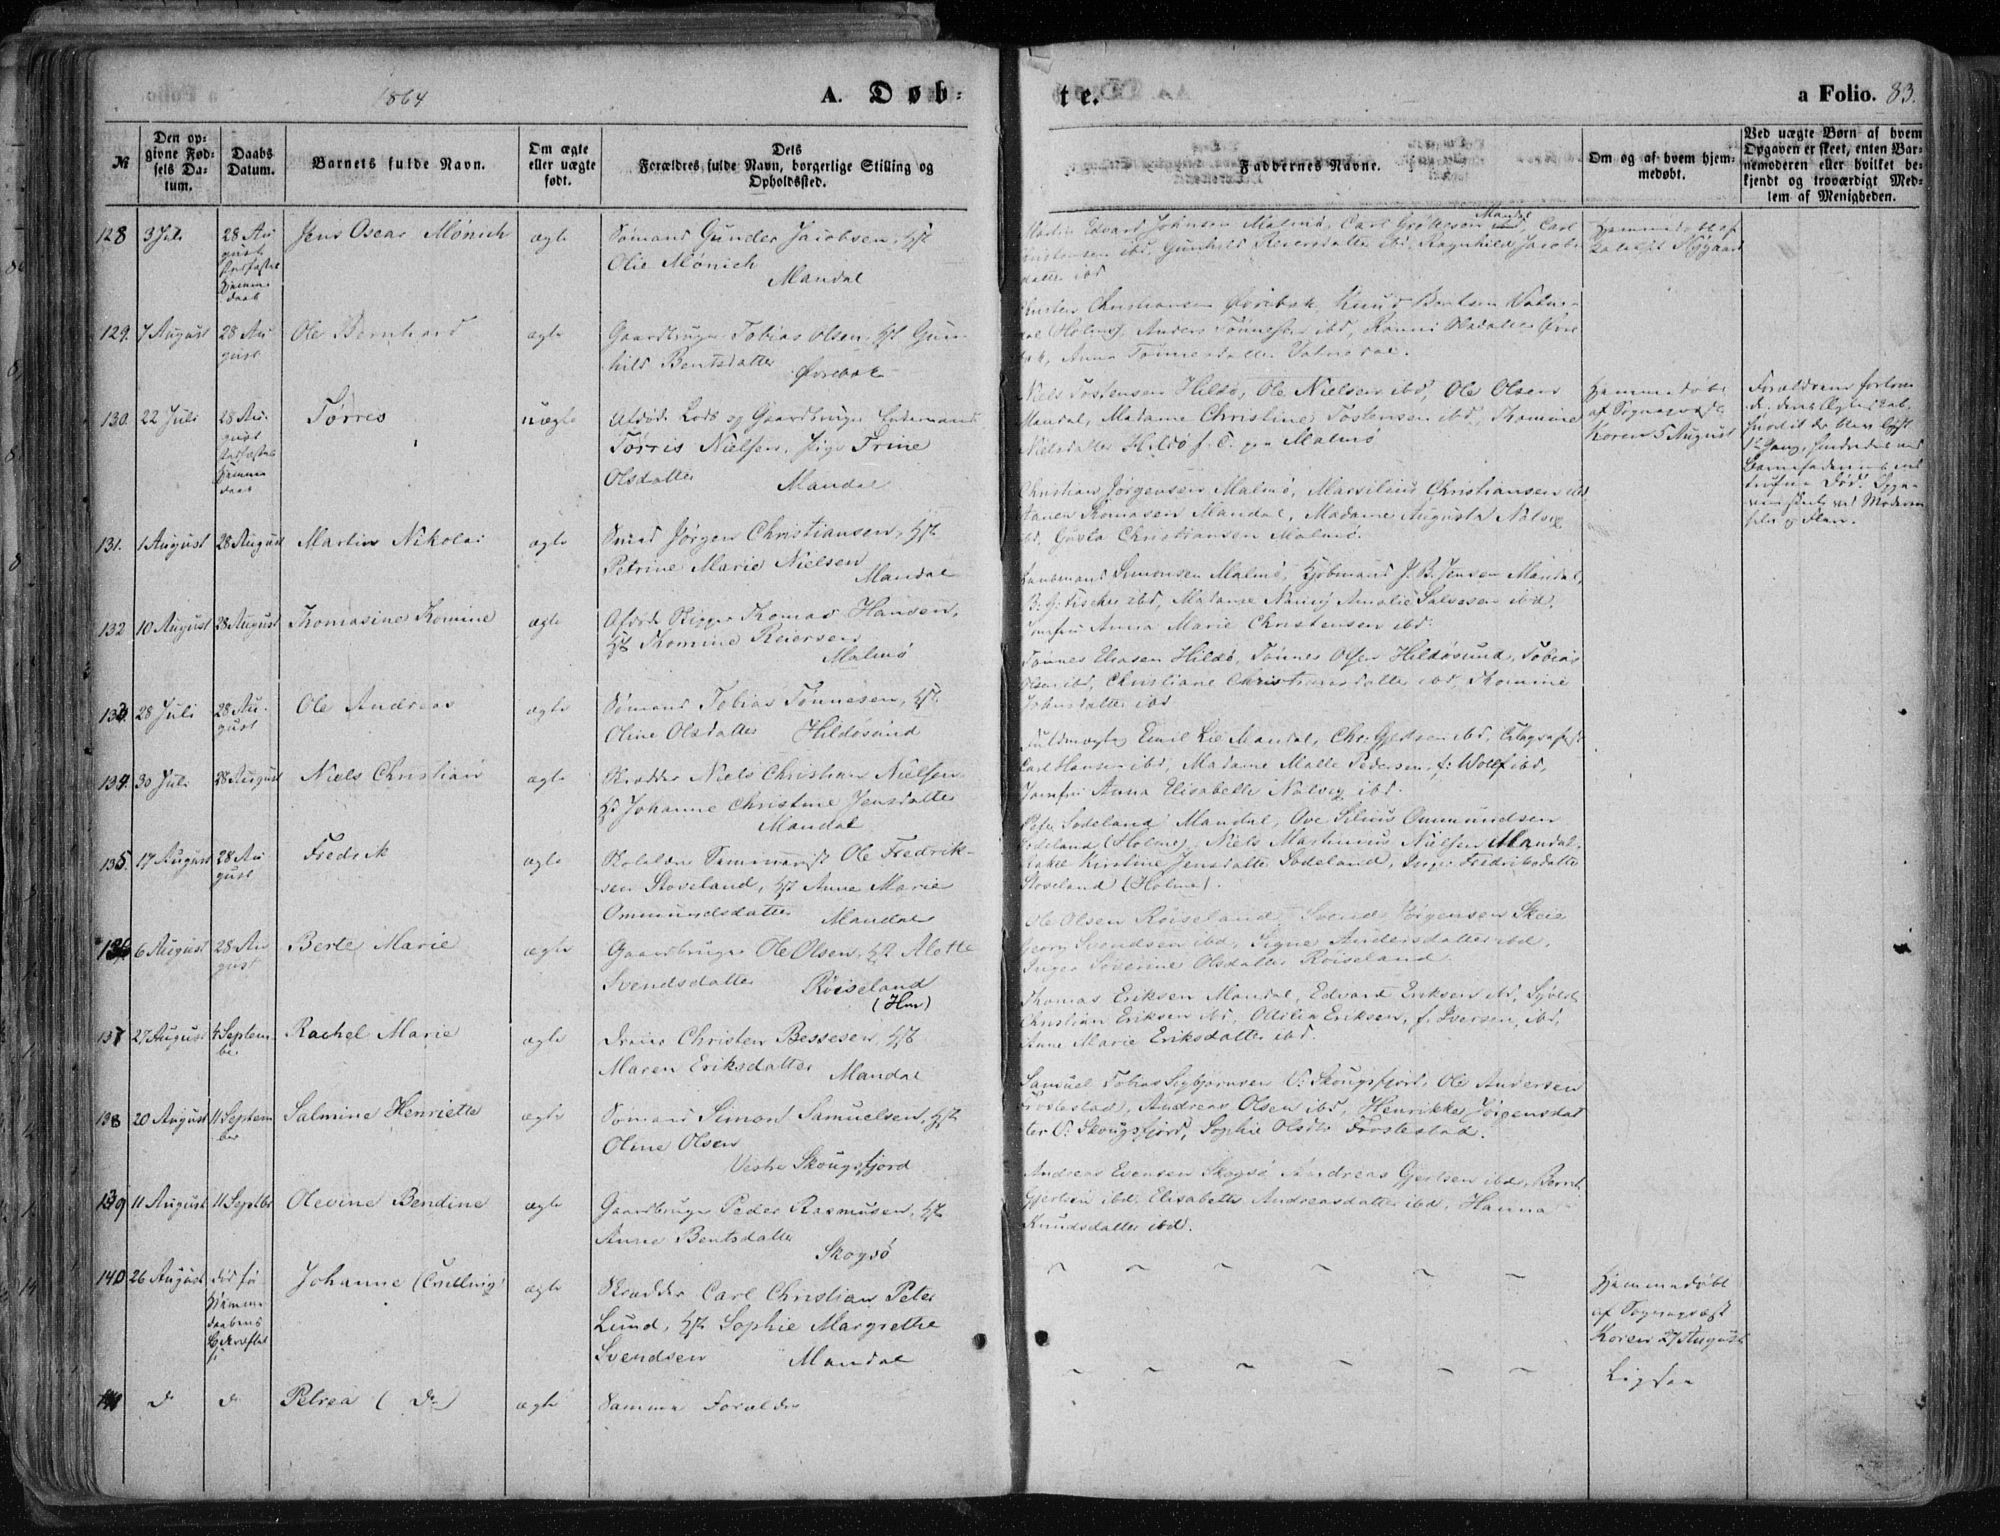 1864
A. Døb-
te.
a Folio. 83.
№
Den op-
givne Fød-
sels Da-
tum.
Daabs
Datum.
Barnets fulde Navn.
Om ægte
eller uægte
født.
Dets
Forældres fulde Navn, borgerlige Stilling og
Opholdssted.
Faddernes Navne.
Om og af hvem hjem-
medøbt.
Ved uægte Børn af hvem
Opgaven er skeet, enten Bar-
nemoderen eller hvilket be-
kjendt og troværdigt Med-
lem af Menigheden.
128
3 Juli
28 Au-
gust
Hjemme
daab
Jens Oscar Mønich
ægte
Sømand Gunder Jacobsen, Hst
Olie Mønich
Mandal
Martin Edvard Johnsen Malmø, Carl Mandal, Carl
Christensen ibd, Gunhild Reiersdatter ibd, Ragnhild Jacobs-
datter ibd
Hjemmedøbt af
Kateket Nygaard
129.
7 August
28 Au-
gust
Ole Bernhard
ægte
Gaardbruger Tobias Olsen, Hst Gun-
hild Bentsdatter
Øvrebøk
Christen Christiansen Øvrebøk, Knud Bentsen
Holme, Anders Tønnesen ibd, Olsdatter Øvre
bøk, Anna Tønnesdatter
130.
22 Juli
28 Au-
gust
Hjemme
daab
Tørres
uægte
Afdøde Lods og Gaardbruger Enkemand
Tørris Nielsen, Pige Trine
Olsdatter
Mandal
Niels Tostensen Hildø, Ole Nielsen ibd, Ole Olsen
Mandal, Madame Christine Tostensen ibd, Thomine
Nielsdatter Hildø f. Malmø
Hjemmedøbt
af Sognepræst
Koren 5 August
Forældrene forlove
de, deres Ægteskab,
hvortil der blev lyst
1ste Gang, hindredes ved
Barnefaderens
Død.
131.
1 August
28 August
Martin Nikolai
ægte
Smed Jørgen Christiansen, Hst
Petrine Marie Nielsen
Mandal
Christian Jørgensen Malmø, Marsilius Christiansen ibd
Thomasen Mandal, Madame Augusta Nalvig
ibd, Gusta Christiansen Malmø.
132
10 August
28 August
Thomasine Thomine
ægte
Afdøde Rigger Thomas Hansen,
Hst Thomine Reiersen
Malmø
Simonsen Malmø, Kjøbmand J. B. Jensen Mandal,
B. G. Fischer ibd, Madame Nancy Amalie Salvesen ibd,
Jomfru Anna Marie Christensen ibd.
133.
28 Juli
28 Au-
gust
Ole Andreas
ægte
Sømand Tobias Tønnesen, Hst
Oline Olsdatter Hildøsund
Tønnes Hildø, Tønnes Olsen Hildøsund, Tobias
Olsen ibd, Christiane Christiansdatter ibd, Thomine
Johnsdatter ibd
134.
30 Juli
28 August
Niels Christian
ægte
Skrædder Niels Christian Nielsen
Hst Johanne Christine Jensdatter
Mandal
Fuldmægtig Emil Lie Mandal, Chr. Gjertsen ibd,
Carl Hansen ibd, Madame Malle Pedersen f: Wolf ibd,
Jomfru Anna Elisabeth Nalvig ibd.
135.
17 August
28 Au-
gust
Fredrik
ægte
Ole Fredrik-
sen Stoveland, Hst Anne Marie
Ommundsdatter Mandal
Peter Sodeland Mandal, Ove Silius Ommundsen
Sodeland (Holme), Niels Martinius Nielsen Mandal,
Rakel Kirstine Jensdatter Sodeland, Inger Fredriksdatter
Stoveland (Holme).
136.
6 August
28 Au
gust
Berte Marie
ægte
Gaardbruger Ole Olsen, Hst Alette
Svendsdatter
Røiseland
(Hm)
Ole Olsen Røiseland, Svend Jørgensen Skeie
Georg Svendsen ibd, Signe Andersdatter ibd,
Inger Severine Olsdatter Røiseland
137
27 August
4 Septem-
ber
Rachel Marie
ægte
Christen Bessesen, Hst
Maren Eriksdatter
Mandal
Thomas Eriksen Mandal, Edvard Eriksen ibd,
Christian Eriksen ibd, Ottilia Eriksen, f. Iversen, ibd,
Anne Marie Eriksdatter ibd.
138
20 August
11 Septem
ber
Salmine Henriette
ægte
Sømand Simon Samuelsen, Hst
Oline Olsen
Vestre Skougsfjord
Samuel Tobias Segbjørnsen V: Skougsfjord, Ole Andersen
Frostestad, Andreas Olsen ibd, Henrikke Jørgensdat
ter V: Skougsfjord, Sophie Olsdtr Frostestad.
139
11 August
11 Septbr
Olevine Bendine
ægte
Gaardbruger Peder Rasmusen, Hst
Anne Bentsdatter
Skogsø
Andreas Evensen Skogsø, Andreas Gjertsen ibd, Bernt
Gjertsen ibd, Elisabeth Andreasdatter ibd, Hanna
Knudsdatter ibd.
140
26 August
død før
Hjemme
daabens
Bekræftel
se
Johanne (Tvilling)
ægte
Skrædder Carl Christian Peter
Lund, Hst Sophie Margrethe
Svendsen
Mandal
~ ~ ~ ~ ~ ~
Hjemmedøbt
af Sognepræst
Koren 27 August
141
do
do
Petrea ( do )
ægte
Samme Forældre
~ ~ ~ ~ ~ ~
Ligesaa